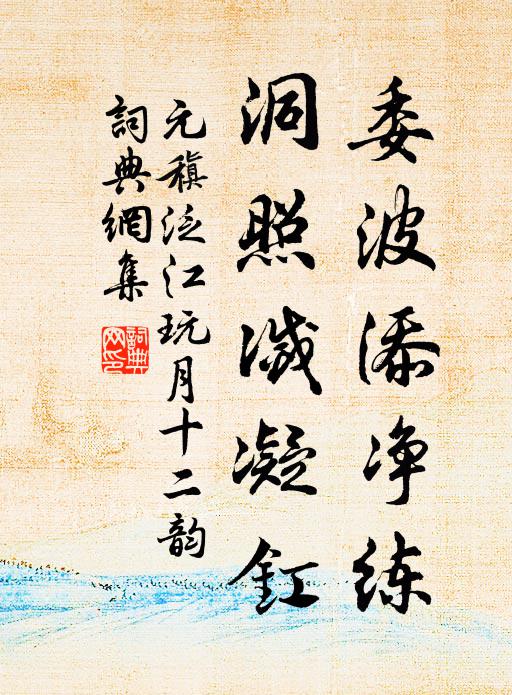 委波添净练
洞照滅凝釭
元稹泛江玩月十二韵
詞典網集
詞典网印